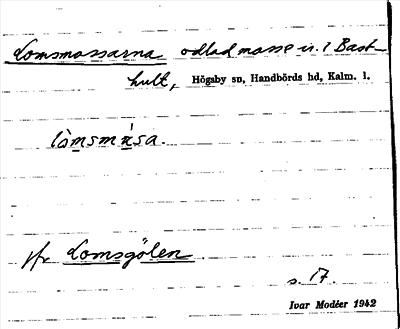 Lomsmossarna odlad mosse i. 1 Bast-
hult, Högsby sn, Handbörds hd, Kalm. l.
lòmsmása.
jfr Lomsgölen
s. 17.
Ivar Modéer 1942